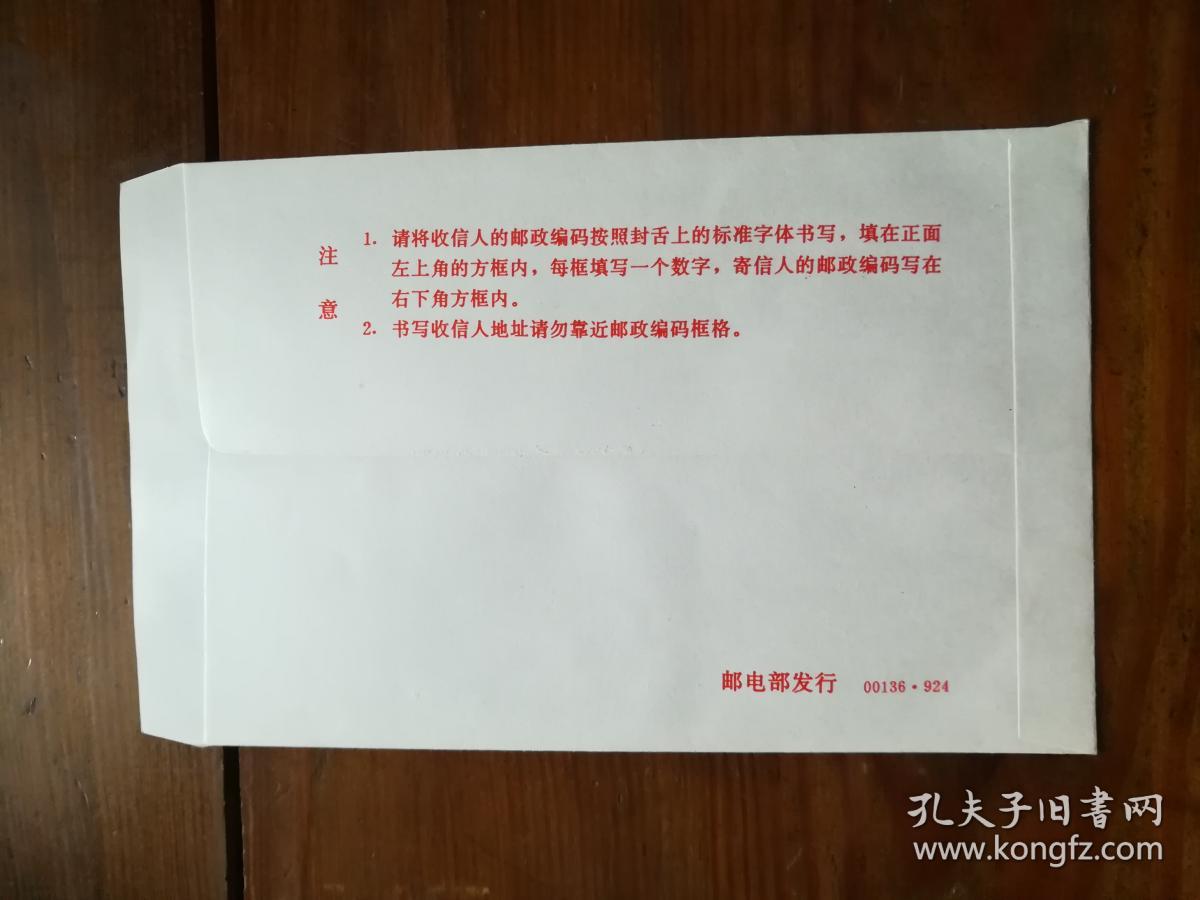 注意
1. 请将收信人的邮政编码按照封舌上的标准字体书写，填在正面
左上角的方框内，每框填写一个数字，寄信人的邮政编码写在
右下角方框内。
2. 书写收信人地址请勿靠近邮政编码框格。
邮电部发行 00136·924
孔夫子旧书网
www.kongfz.com